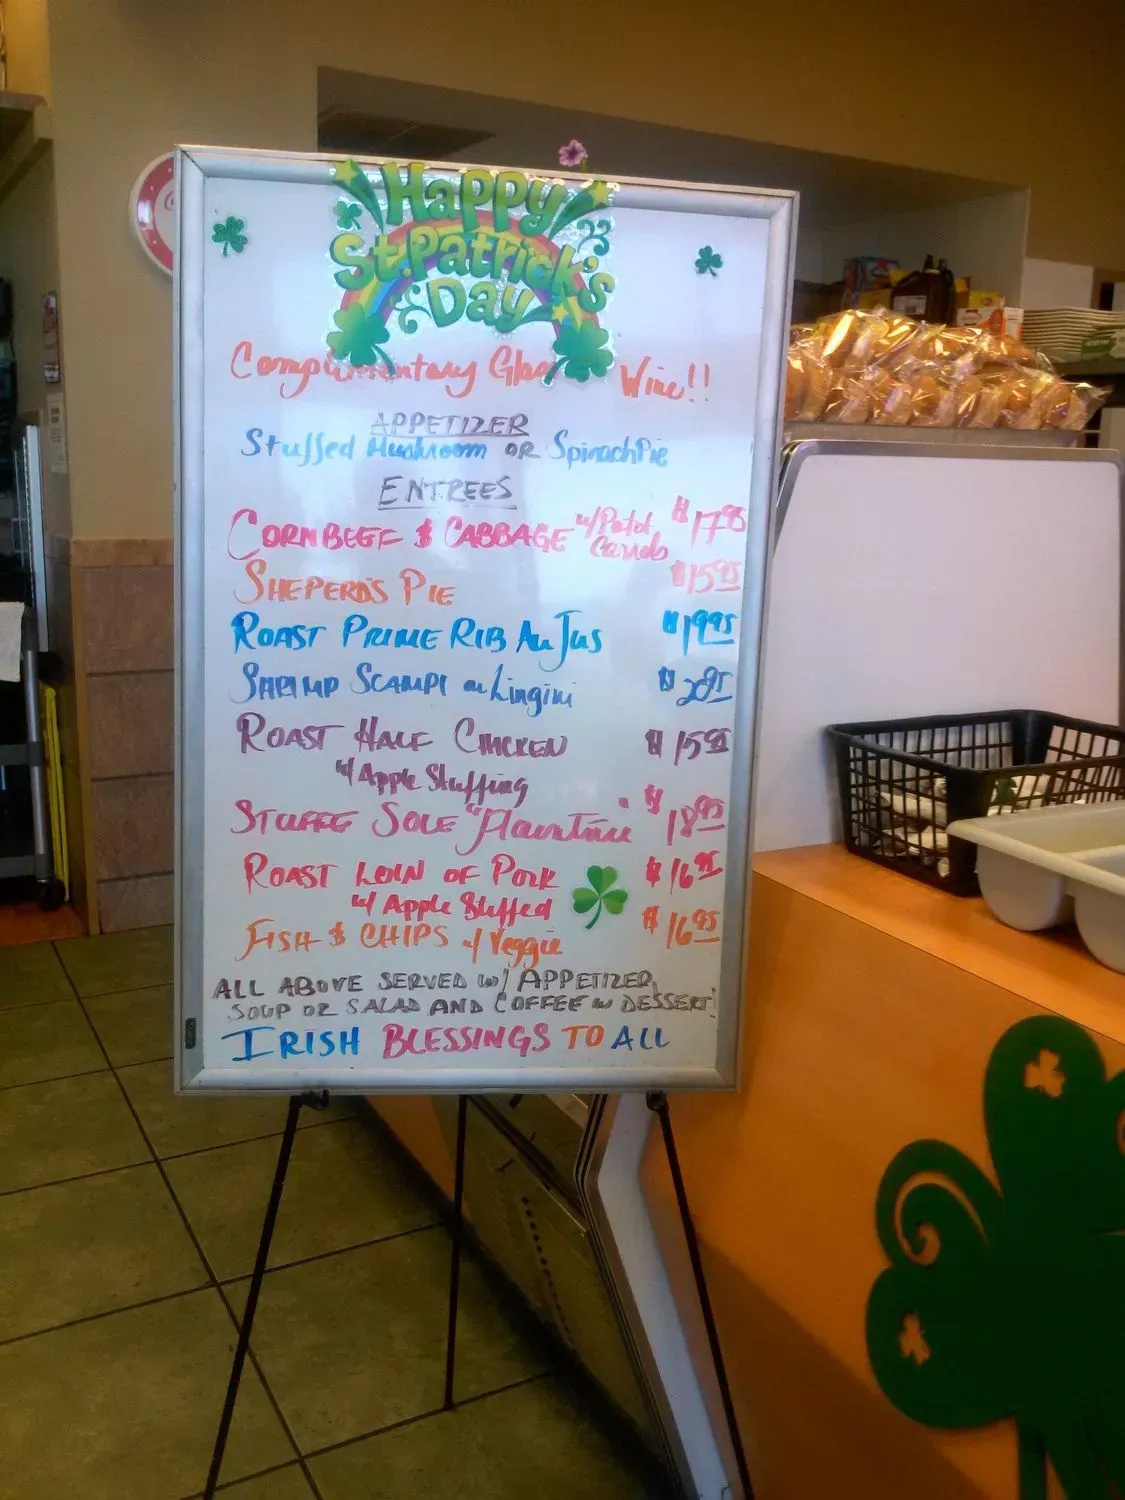 Happy
St. Patrick's
Day
Complimentary Glass Wine!!
APPETIZER
Stuffed Mushroom OR Spinach Pie
ENTREES
CORN BEEF & CABBAGE w/ Potat $17.95
Carrots
SHEPERD'S PIE $15.95
ROAST PRIME RIB Au Jus $19.95
SHRIMP SCAMPI on Lingini $20.95
ROAST HALF CHICKEN $15.95
w/ Apple Stuffing
STUFFE SOLE "Florintine" $18.95
ROAST LOIN OF PORK $16.95
w/ Apple Stuffed
FISH & CHIPS w/ Veggie $16.95
ALL ABOVE SERVED w/ APPETIZER,
SOUP OR SALAD AND COFFEE w DESSERT!
IRISH BLESSINGS TO ALL